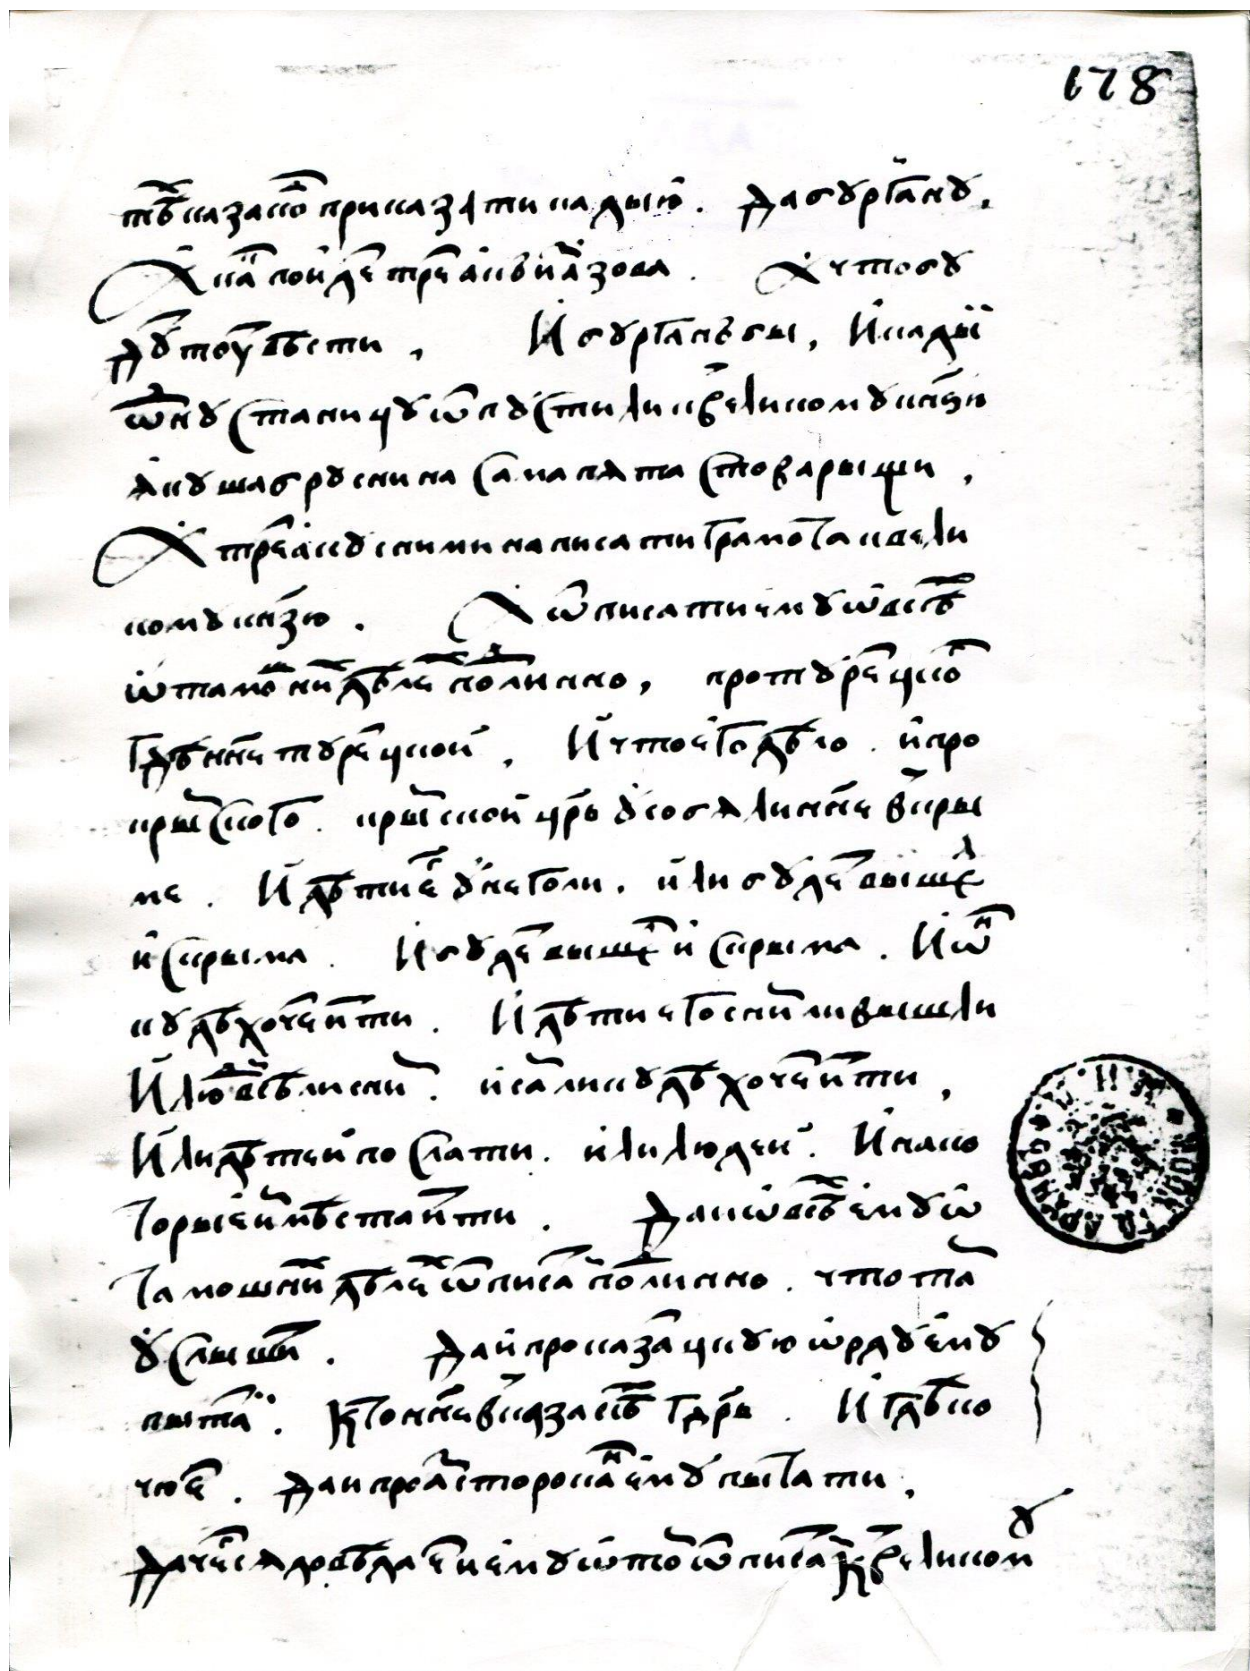 178
тѣх казаков приказати кадыю. Да Бургану.
А как пойдет Третьяк в Азова. А что бу
дут о вѣсти, И Бурган бы, И кадыи
ону станицу отпустили к великому кнзю
Якуша Брусенина сама пята с товарыщи,
А Третьяку с ними написати грамота к вели
кому кнзю. А отписати ему о всѣх
о тамошних дѣлех подлинно, про турецког
гдѣ нне турецкой, И что его дѣло. и про
крымского. крымской црь усобя ли нне в Кры
ме. И дѣти ег у него ли. или будет вышел
ис Крыма. И будет вышел ис Крыма. И он
куды хочет ити. И дѣти его с ним ли вышли
И люди всѣ ли с ним. и сам ли куды хочет ити,
Или дѣтей послати. или людей. И на ко
торые им мѣста ити. Да и о всѣх ему о
тамошних дѣлех отписат подлинно. что там
услышит. Да и про казатцкую орду ему
пытат. Кто нне в казасѣх гдрь. И гдѣ ко
чюет. Да и про Асторохан ему пытати,
Да чего ся довѣдает и ему о том отписат к великому